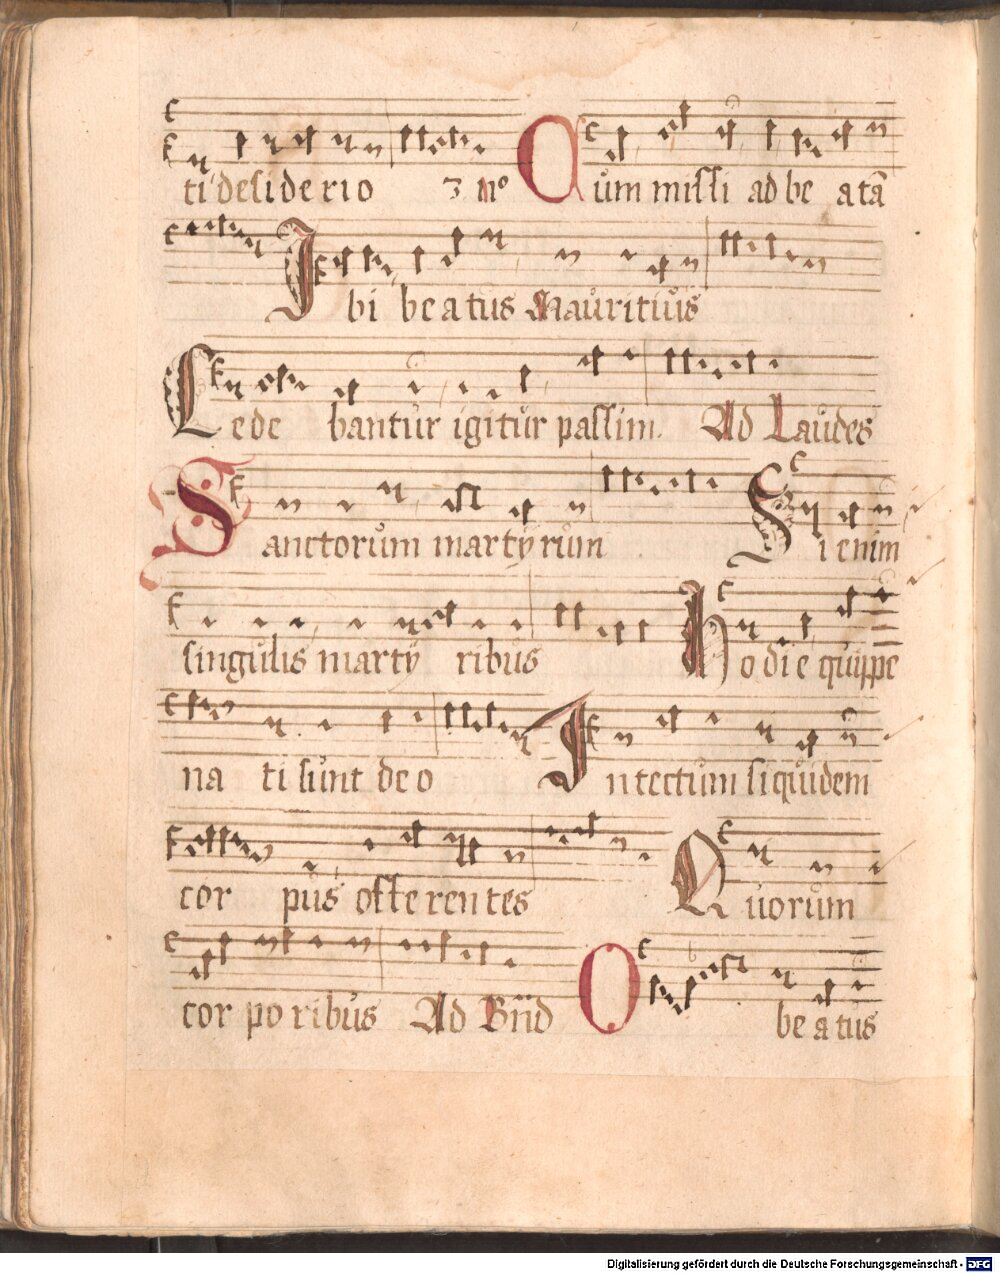 ti desiderio 3 no Cum missi ad be atā
Ibi beatus Mauritius
Cede bantur igitur passim Ad Laudes
Sanctorum martyrum Si enim
singulis marty ribus Hodie quippe
na ti sunt deo In tectum siquidem
cor pus offe ren tes Quorum
cor po ribus Ad Bñd O beatus
Digitalisierung gefördert durch die Deutsche Forschungsgemeinschaft - DFG